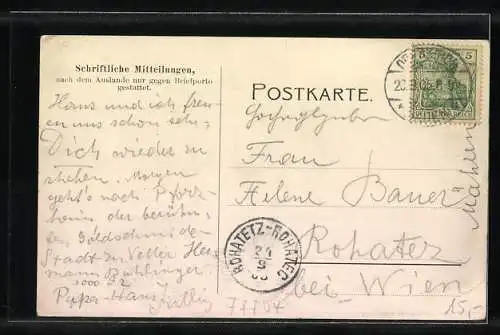 Schriftliche Mitteilungen,
nach dem Auslande nur gegen Briefporto
gestattet.
Hans und ich freu-
en uns schon sehr,
Dich wieder zu
sehen. Morgen
geht's nach Pforz-
heim der berühm-
ten Goldschmiede-
Stadt zu Vetter Her-
mann
1000
Papa Hans
POSTKARTE.
Frau
Helene Bauer
Rohatez
bei Wien
Mähren
5
ROHATETZ-ROHATEC
24
9
77704
15,-